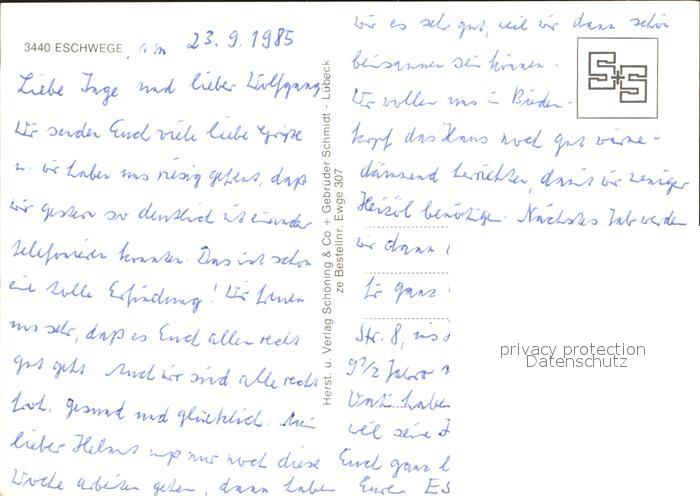 3440 ESCHWEGE, am 23.9.1985
Liebe Inge und lieber Wolfgang
Wir senden Euch viele liebe Grüße
u. wir haben uns riesig gefreut, daß
wir gestern so deutlich miteinander
telefonieren konnten. Das ist schon
eine tolle Erfindung! Wir freuen
uns sehr, daß es Euch allen recht
gut geht. Auch wir sind alle recht
froh, gesund und glücklich. Mein
lieber Helmut muß nur noch diese
Woche arbeiten gehen, dann haben
Herst. u. Verlag Schöning & Co + Gebrüder Schmidt - Lübeck
ze Bestellnr. Ewge 307
wir es sehr gut, weil wir dann schön
beisammen sein können.
Wir wollen uns in Bieden-
kopf das Haus noch gut wärme-
dämmend herrichten, damit wir weniger
Heizöl benötigen. Nächstes Jahr werden
wir dann
ganz
Str. 8, ins
9 1/2 Jahre
haben
weil seine
Euch ganz
Eure
S+S
privacy protection
Datenschutz